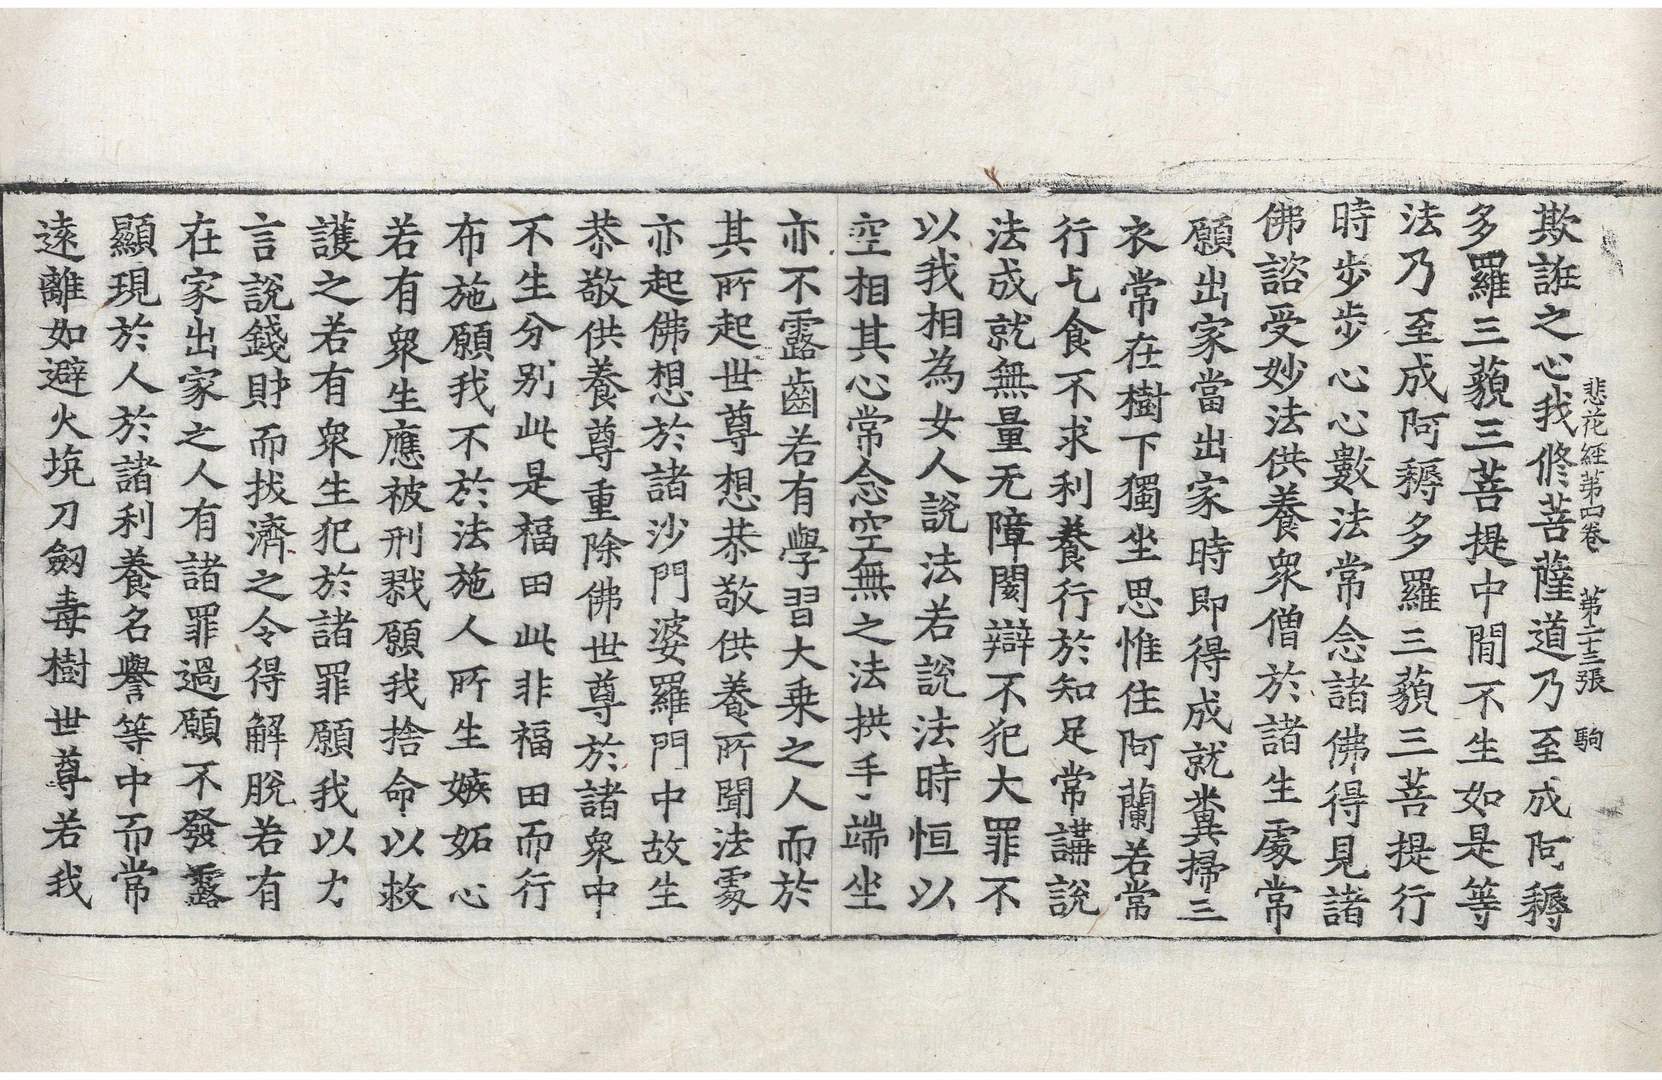 悲花經第四卷 第二十三張 駒
欺誑之心我脩菩薩道乃至成阿耨
多羅三藐三菩提中閒不生如是等
法乃至成阿耨多羅三藐三菩提行
時步步心心數法常念諸佛得見諸
佛諮受妙法供養衆僧於諸生處常
願出家當出家時即得成就糞掃三
衣常在樹下獨坐思惟住阿蘭若常
行乞食不求利養行於知足常講說
法成就無量无障閡辯不犯大罪不
以我相為女人說法若說法時恒以
空相其心常念空無之法拱手端坐
亦不露齒若有學習大乘之人而於
其所起世尊想恭敬供養所聞法處
亦起佛想於諸沙門婆羅門中故生
恭敬供養尊重除佛世尊於諸衆中
不生分別此是福田此非福田而行
布施願我不於法施人所生嫉妬心
若有衆生應被刑戮願我捨命以救
護之若有衆生犯於諸罪願我以力
言說錢財而拔濟之令得解脫若有
在家出家之人有諸罪過願不發露
顯現於人於諸利養名譽等中而常
遠離如避火坑刀劒毒樹世尊若我